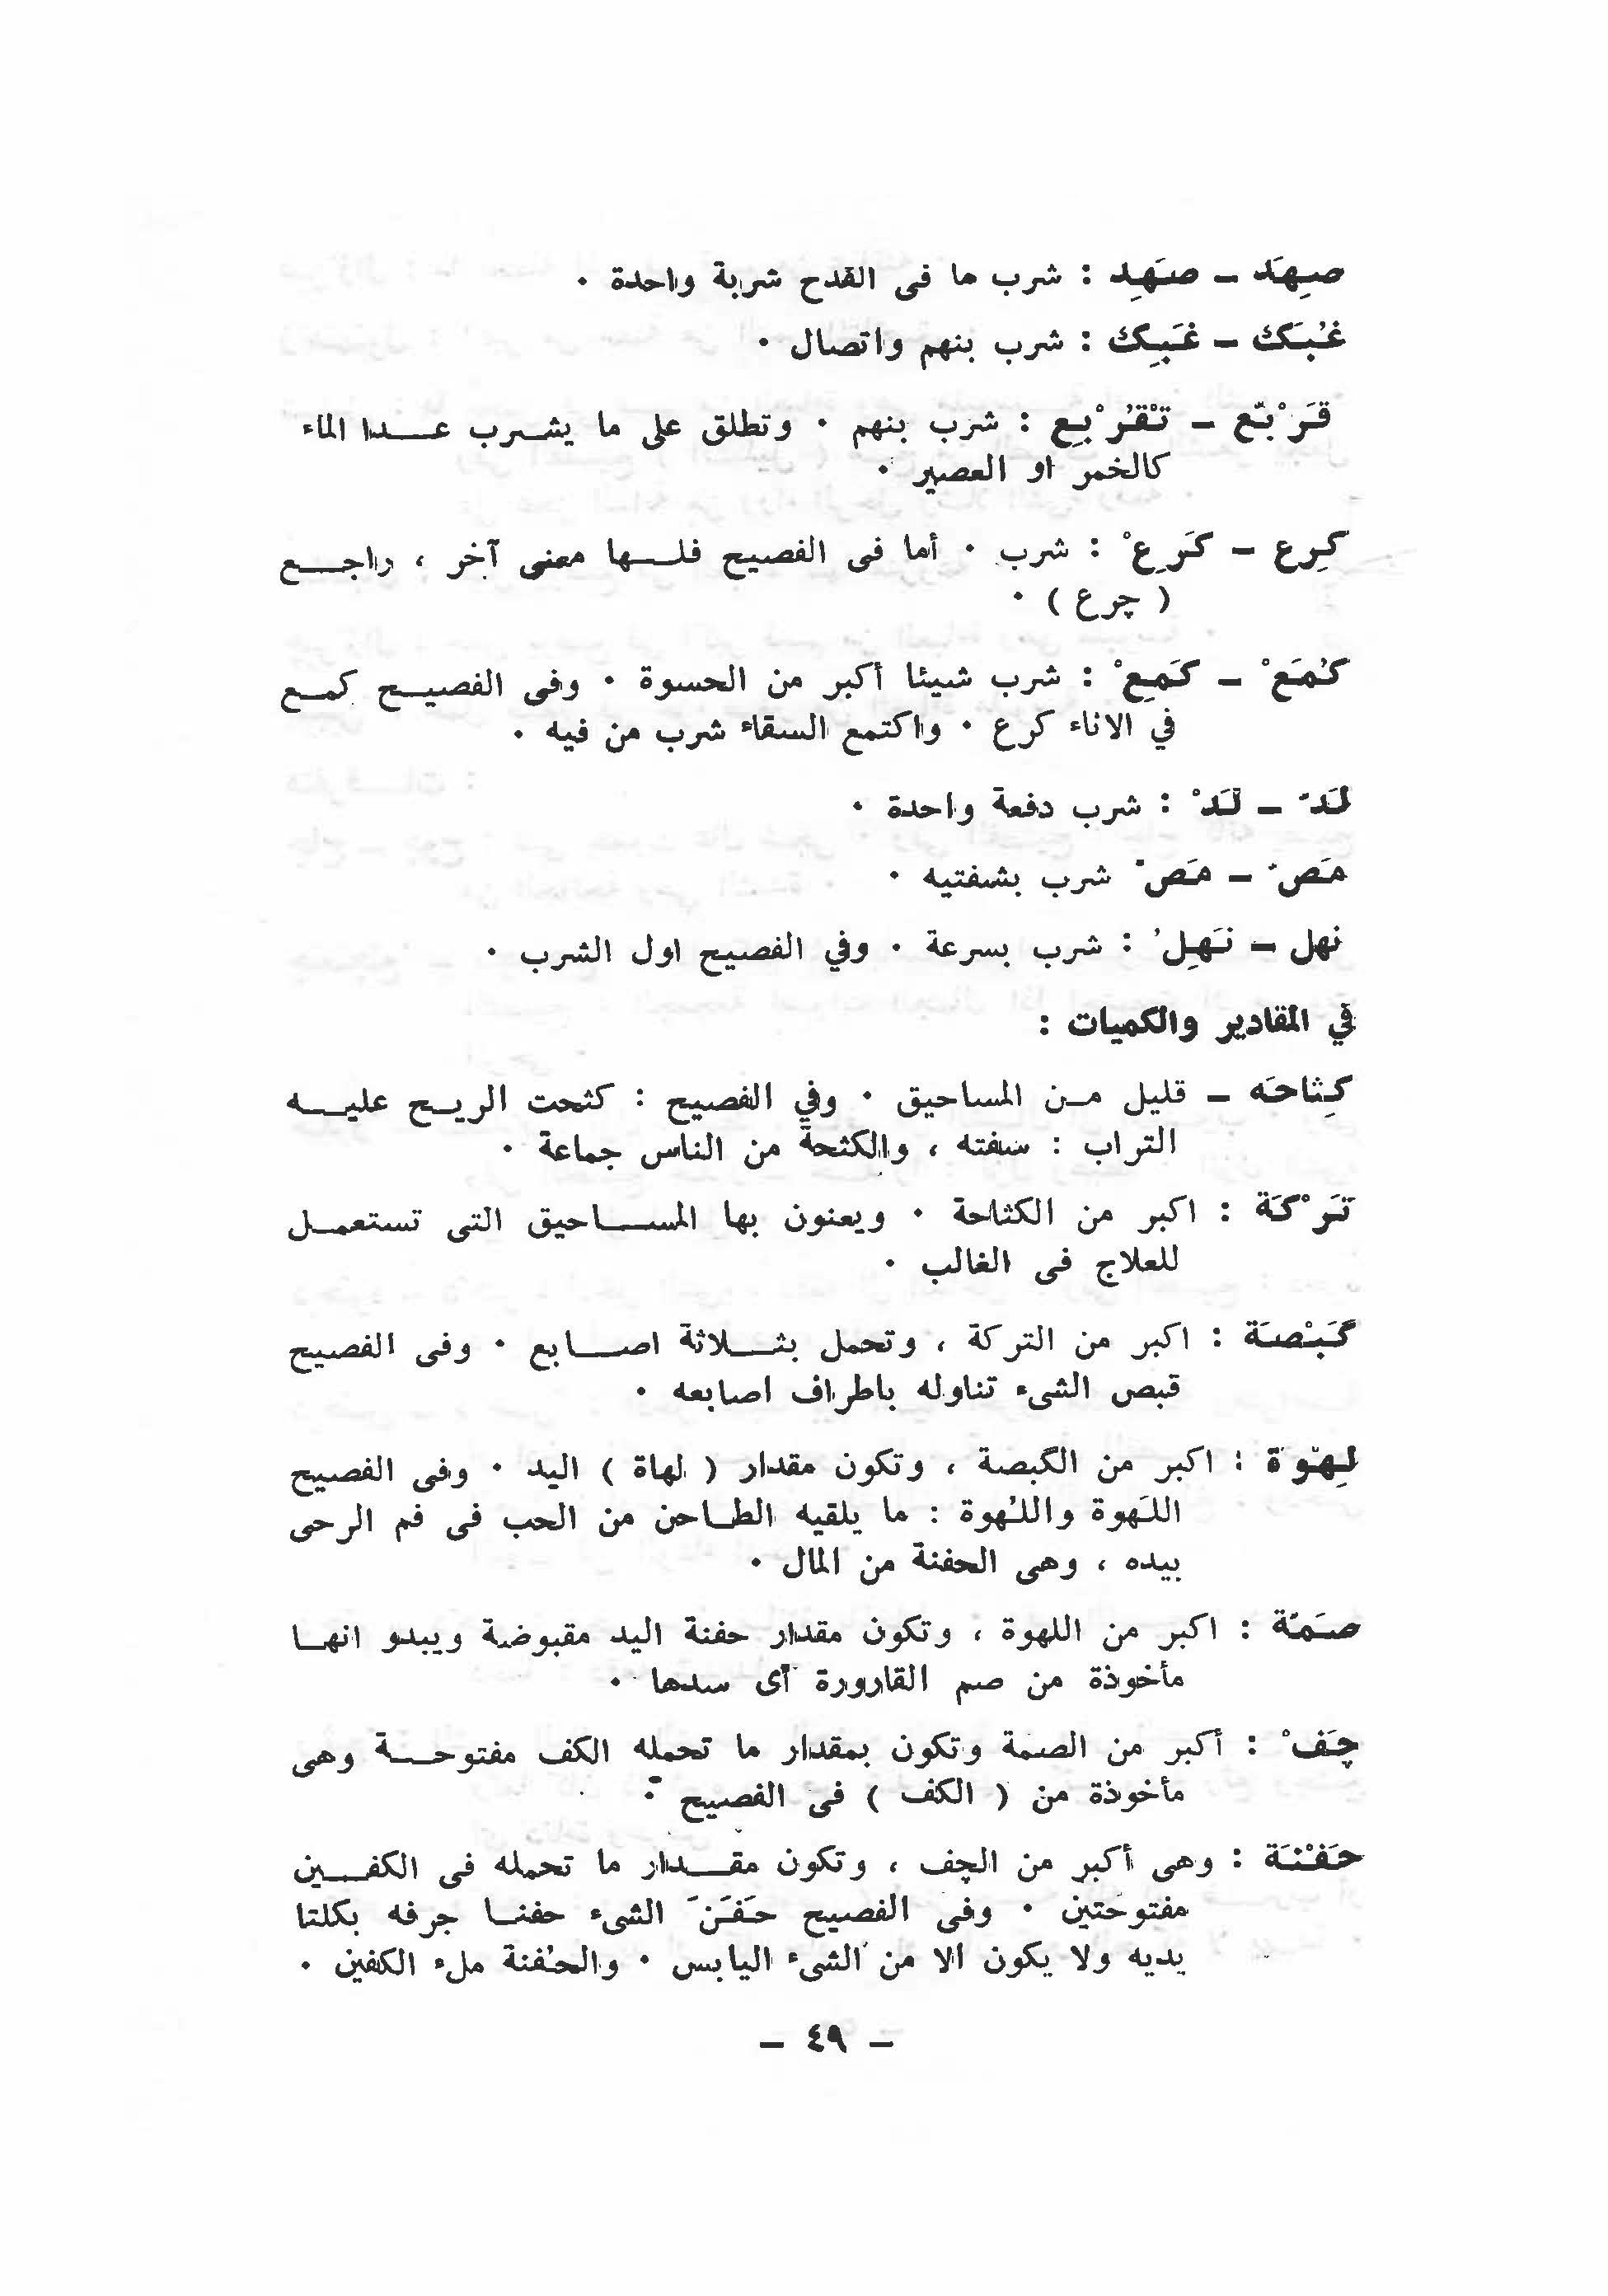 صِهَد – صَهِد : شرب ما فى القدح شربة واحدة ٠
غُبَگ – غَبِگ : شرب بنهم واتصال ٠
قَرْبَّع – تْقُرْبِع : شرب بنهم ٠ وتطلق على ما يشرب عدا الماء
كالخمر او العصير ٠
كِرع – كَرِعْ : شرب ٠ أما فى الفصيح فلها معنى آخر ، راجع
( چرع ) ٠
كُمَعْ – كَمِعْ : شرب شيئا أكبر من الحسوة ٠ وفى الفصيح كمع
في الاناء كرع ٠ واكتمع السقاء شرب من فيه ٠
لَدّ – لَدْ : شرب دفعة واحدة ٠
مَصّ – مَصْ شرب بشفتيه ٠
نهل – نَهِلْ : شرب بسرعة ٠ وفي الفصيح اول الشرب ٠
في المقادير والكميات :
كِثاحَه – قليل من المساحيق ٠ وفي الفصيح : كثحت الريح عليه
التراب : سفته ، والكثحة من الناس جماعة ٠
تَرْكَة : اكبر من الكثاحة ٠ ويعنون بها المساحيق التى تستعمل
للعلاج فى الغالب ٠
گَبْصَة : اكبر من التركة ، وتحمل بثلاثة اصابع ٠ وفى الفصيح
قبص الشىء تناوله باطراف اصابعه ٠
لِهْوَة : اكبر من الگبصة ، وتكون مقدار ( لهاة ) اليد ٠ وفى الفصيح
اللَهوة واللُهوة : ما يلقيه الطاحن من الحب فى فم الرحى
بيده ، وهى الحفنة من المال ٠
صَمّة : اكبر من اللهوة ، وتكون مقدار حفنة اليد مقبوضة ويبدو انها
مأخوذة من صم القارورة أى سدها ٠
چَفْ : أكبر من الصمة وتكون بمقدار ما تحمله الكف مفتوحة وهى
مأخوذة من ( الكف ) فى الفصيح ٠
حَفْنَة : وهى أكبر من الچف ، وتكون مقدار ما تحمله فى الكفين
مفتوحتين ٠ وفى الفصيح حَفَنَ الشىء حفنا جرفه بكلتا
يديه ولا يكون الا من الشىء اليابس ٠ والحُفنة ملء الكفين ٠
– ٤٩ –